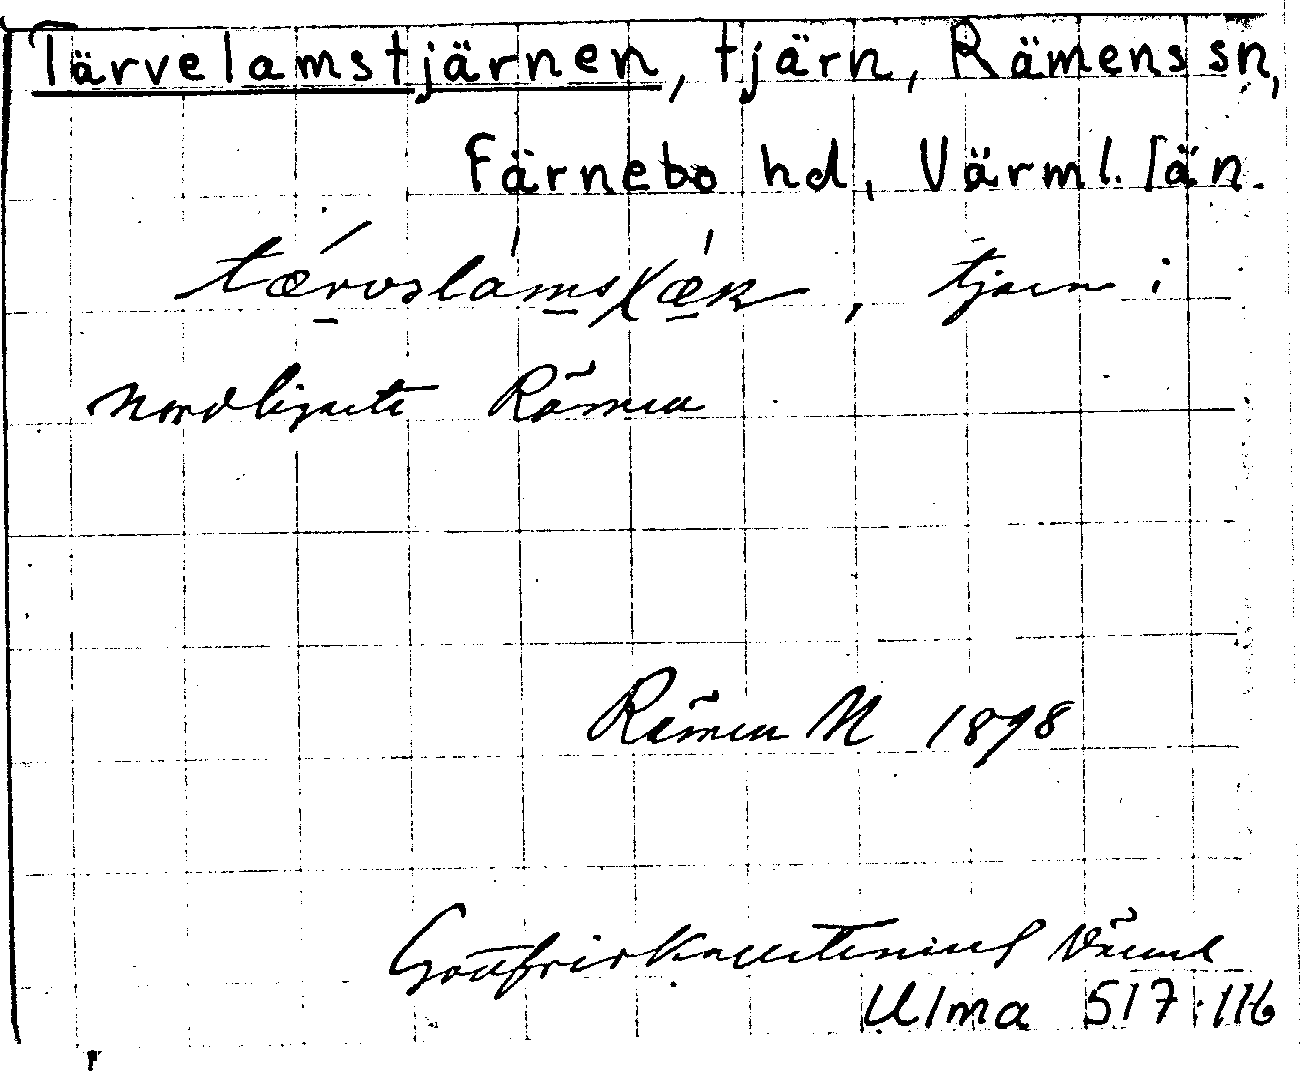 Tärvelamstjärnen, tjärn, Rämens sn,
Färnebo hd, Värml. län.
tjärn i
nordligaste Rämen
Rämen N 1898
Gottfrid Kallstenius Värml
Ulma 517:116